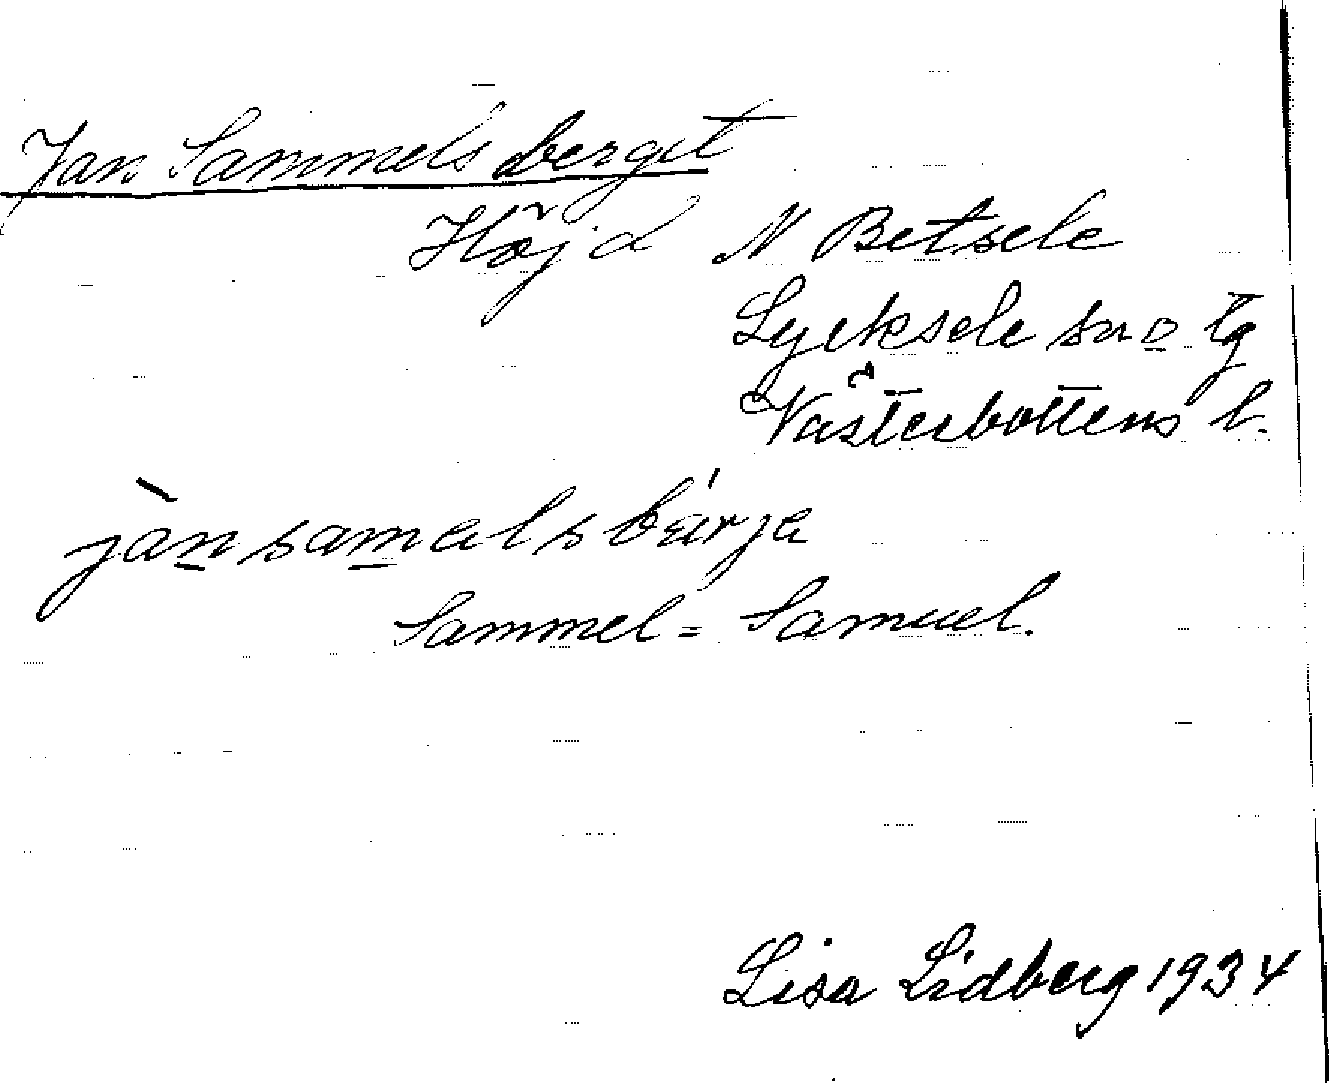 Jan Sammelsberget
Höjd N Betsele
Lycksele sn o tg
Västerbottens l.
jànsamelsbärja
Sammel = Samuel.
Lisa Lidberg 1934